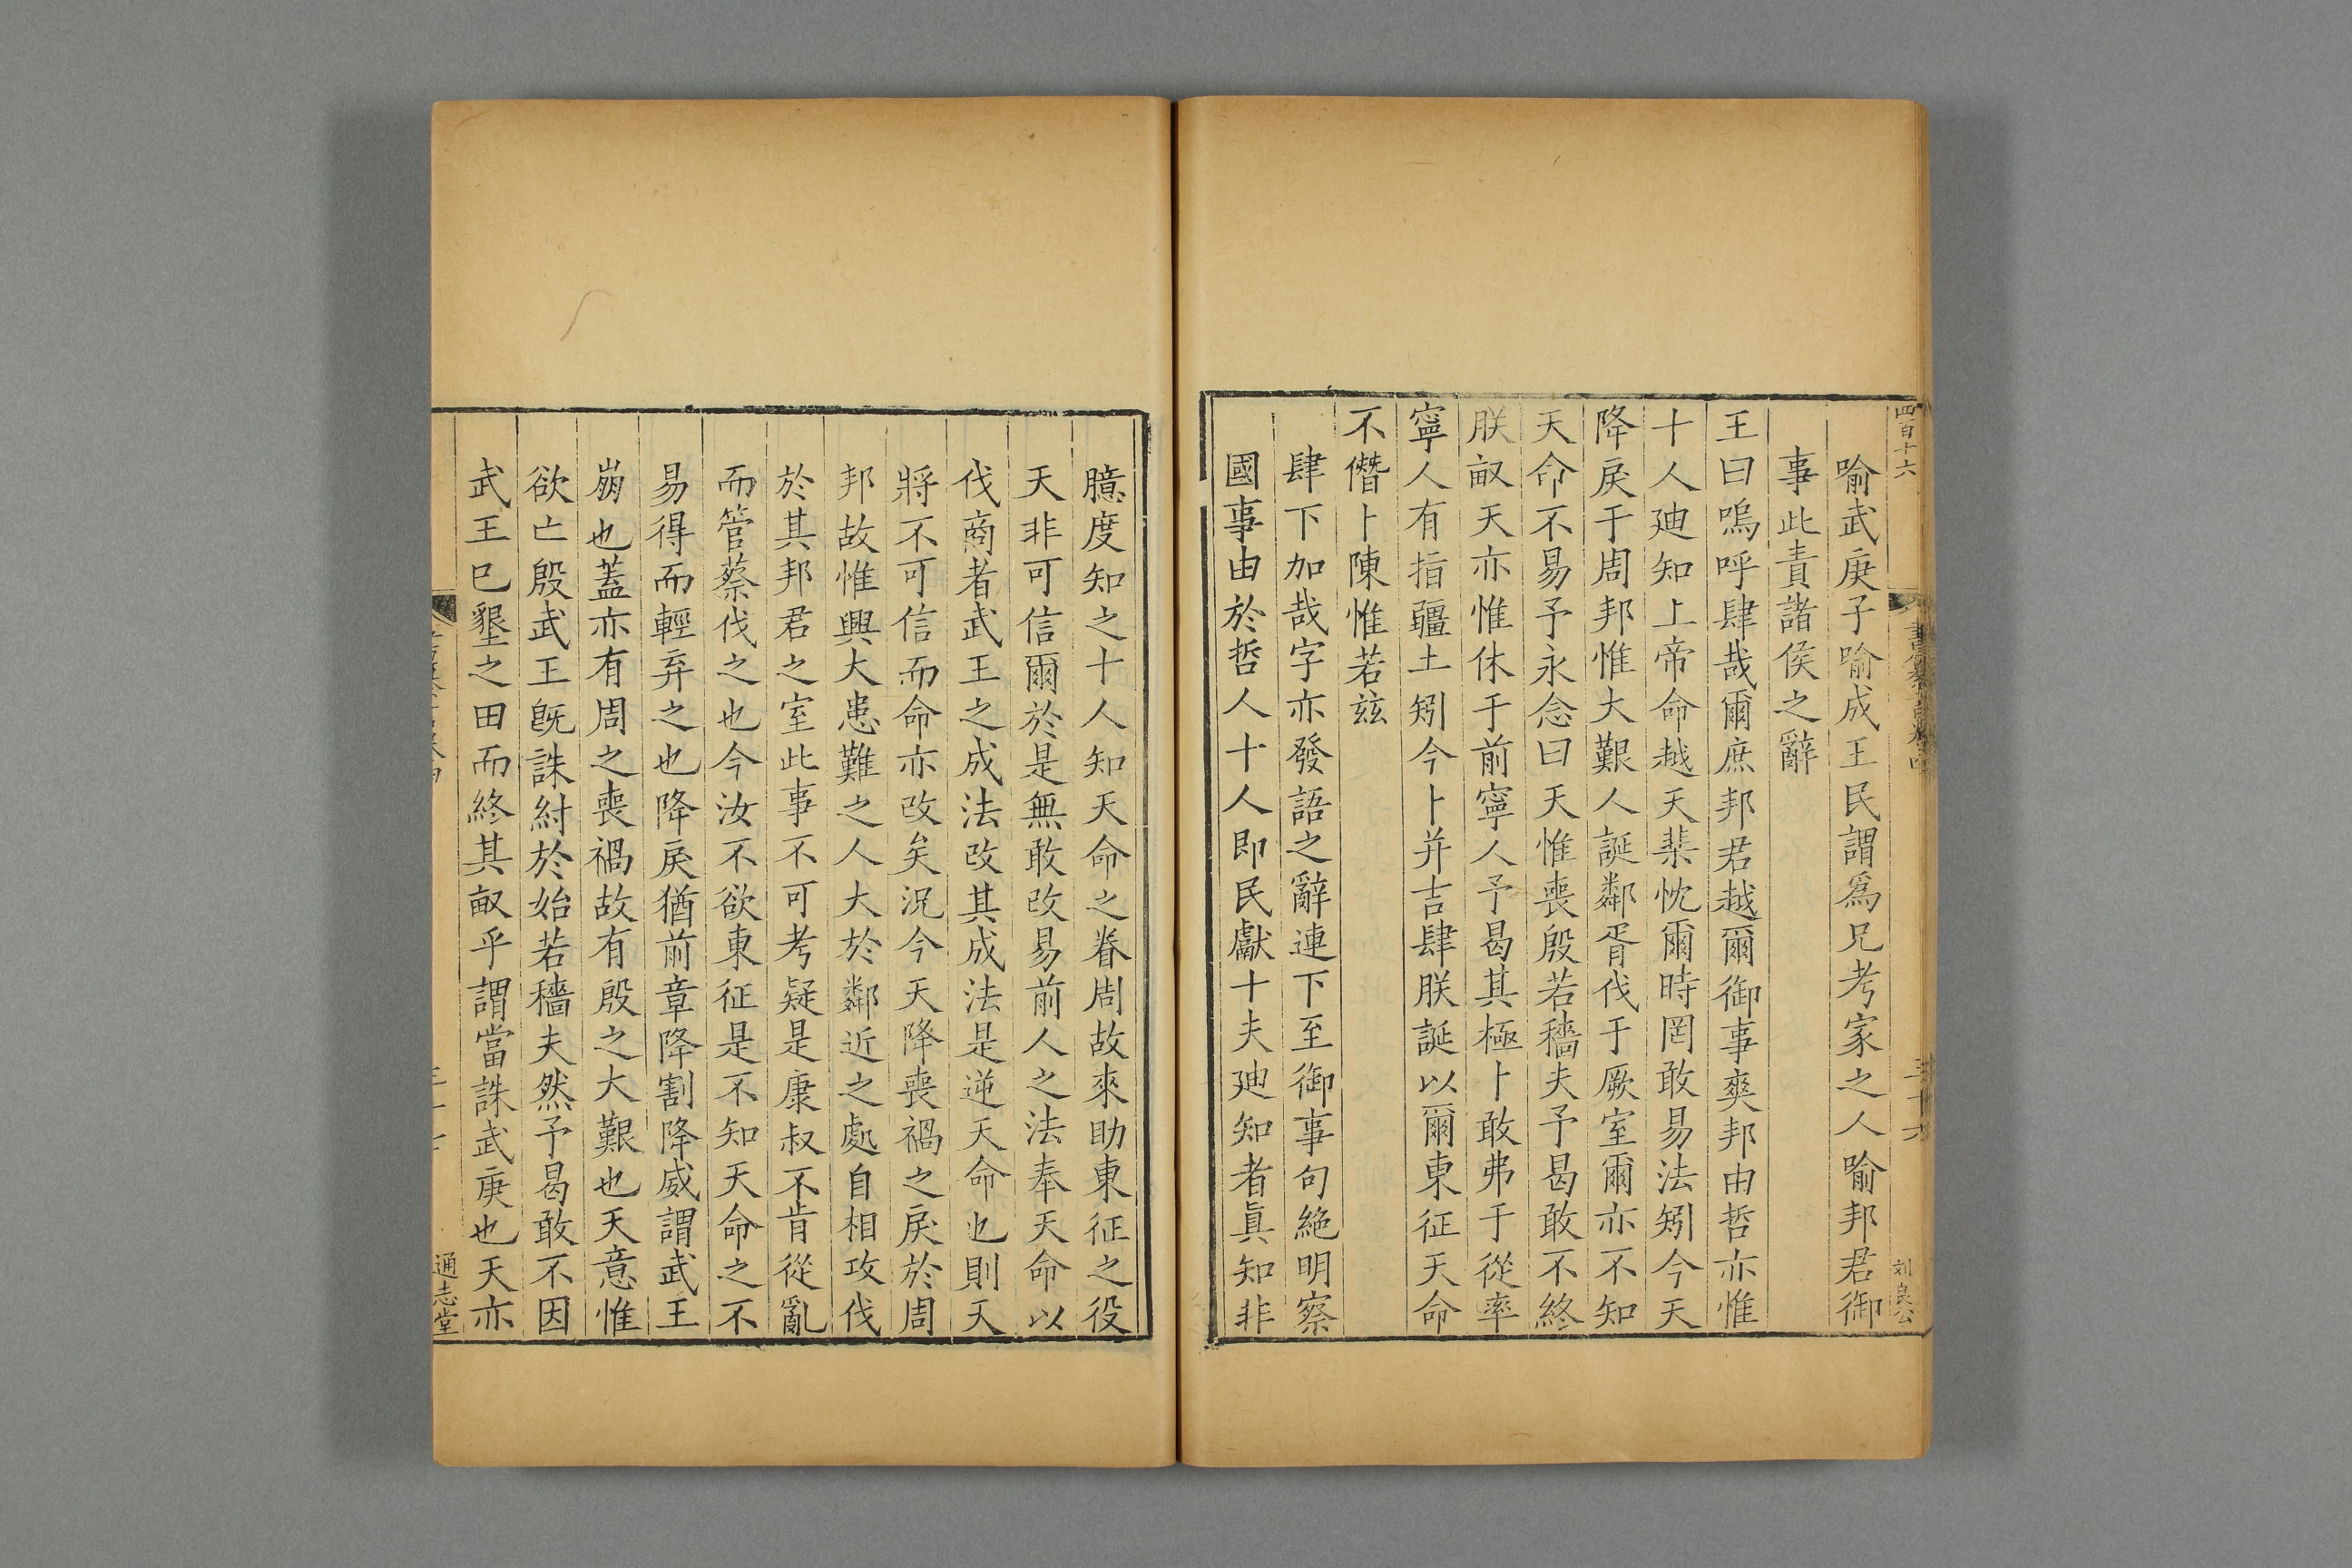 四百十六
喻武庚子喻成王民謂爲兄考家之人喻邦君御
事此責諸侯之辭
王曰嗚呼肆哉爾庶邦君越爾御事爽邦由哲亦惟
十人廸知上帝命越天棐忱爾時罔敢易法矧今天
降戾于周邦惟大艱人誕鄰胥伐于厥室爾亦不知
天命不易予永念曰天惟喪殷若穡夫予曷敢不終
朕畝天亦惟休于前寧人予曷其極卜敢弗于從率
寧人有指疆土矧今卜并吉肆朕誕以爾東征天命
不僭卜陳惟若兹
肆下加哉字亦發語之辭連下至御事句絶明察
國事由於哲人十人即民獻十夫廸知者眞知非
臆度知之十人知天命之眷周故來助東征之役
天非可信爾於是無敢改易前人之法奉天命以
伐商者武王之成法改其成法是逆天命也則天
將不可信而命亦改矣況今天降喪禍之戾於周
邦故惟興大患難之人大於鄰近之處自相攻伐
於其邦君之室此事不可考疑是康叔不肯從亂
而管蔡伐之也今汝不欲東征是不知天命之不
易得而輕弃之也降戾猶前章降割降威謂武王
崩也蓋亦有周之喪禍故有殷之大艱也天意惟
欲亡殷武王旣誅紂於始若穡夫然予曷敢不因
武王已墾之田而終其畝乎謂當誅武庚也天亦
通志堂